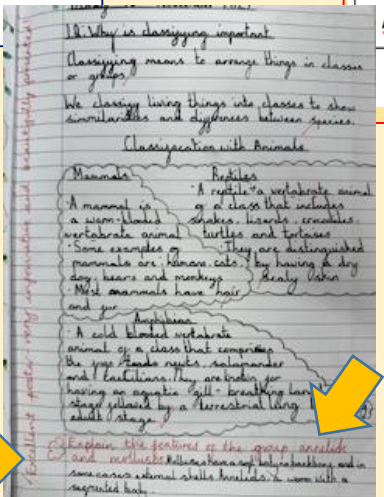 LQ: Why is classifying important
Classifying means to arrange things in classes
or groups.
We classify living things into classes to show
simmilarities and differences between species.
Classification with Animals
Mammals
A mammal is
a warm-blooded
vertabrate animal
Some examples of
mammals are: humans, cats,
dog, bears and monkeys
Most mammals have hair
and fur
Reptiles
A reptile a vertabrate animal
of a class that includes
snakes, lizards, crocodiles,
turtles and tortoises
They are distinguished
by having a dry
Scaly skin
Amphibians
A cold blooded vertabrate
animal of a class that comprises
the frogs toads newts, salamander
and caecilians. They are known for
having an aquatic gill-breathing
stage followed by a terrestrial lung
adult stage.
Explain the features of the group annelids
and molluscs. have a soft body no backbone and in
some cases external shells. Annelids: a worm with a
segmented body.
Excellent poster very informative and beautifully presented